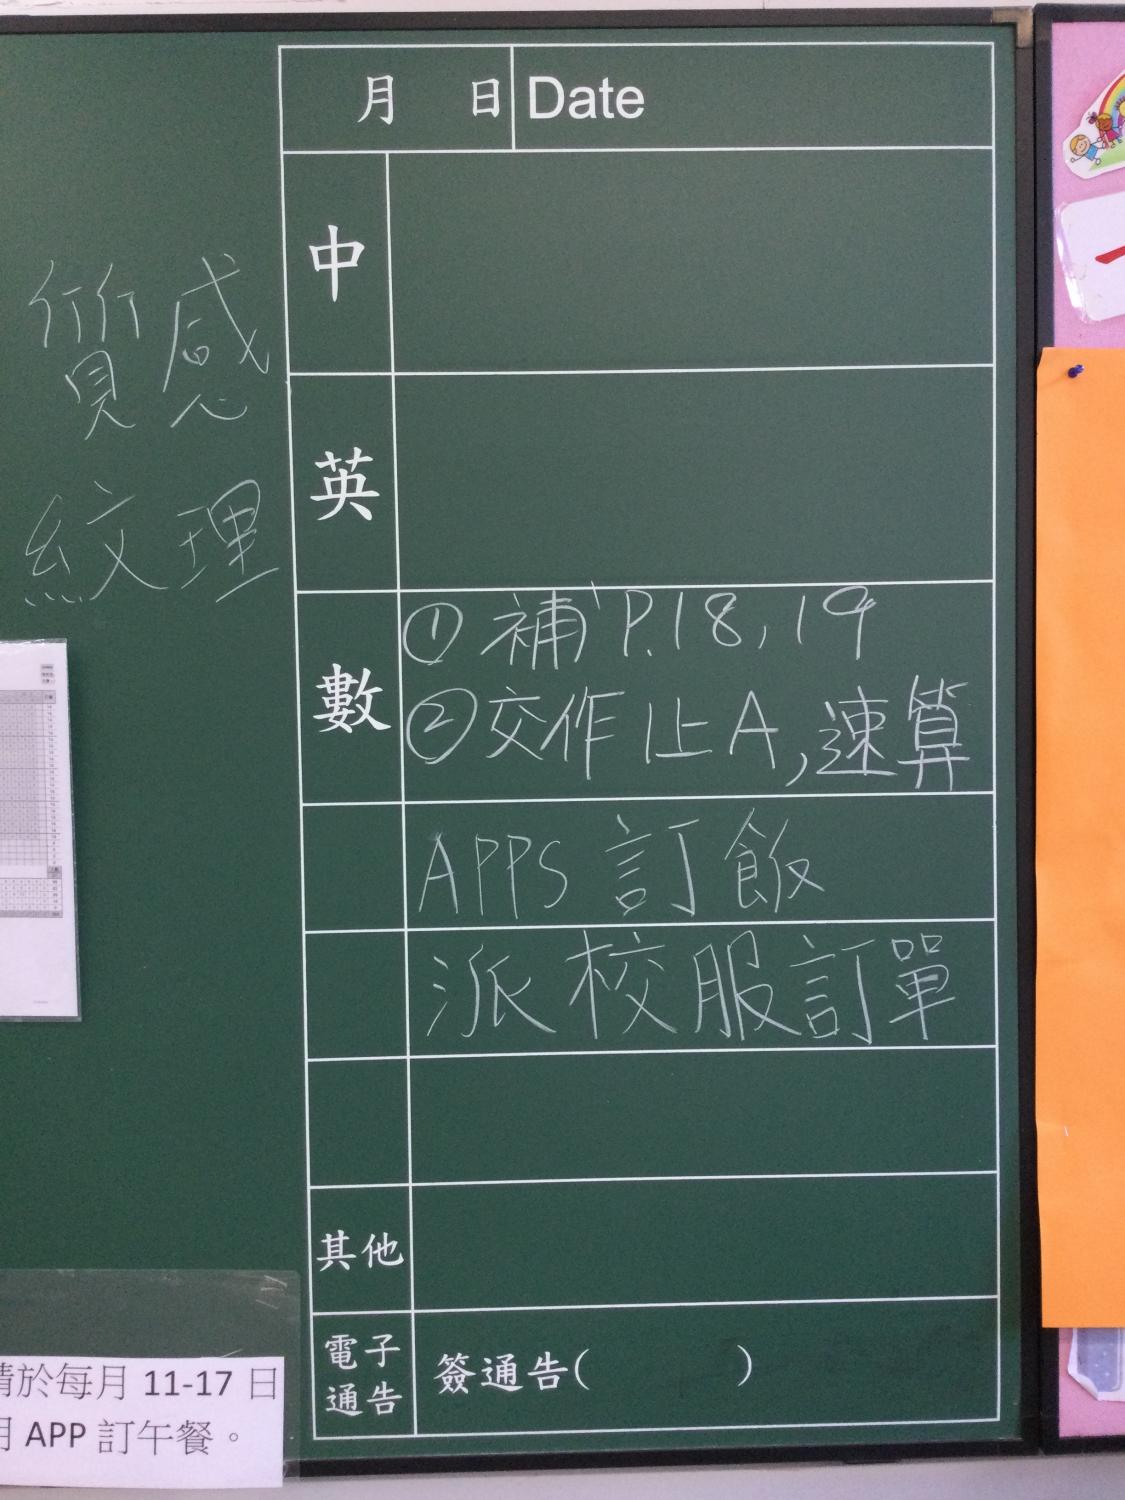 月 日 Date
中
英
數
① 補 P.18, 19
② 交作 1上A, 速算
APPS 訂飯
派校服訂單
其他
電子
通告
簽通告( )
質感
紋理
請於每月 11-17 日
用 APP 訂午餐。